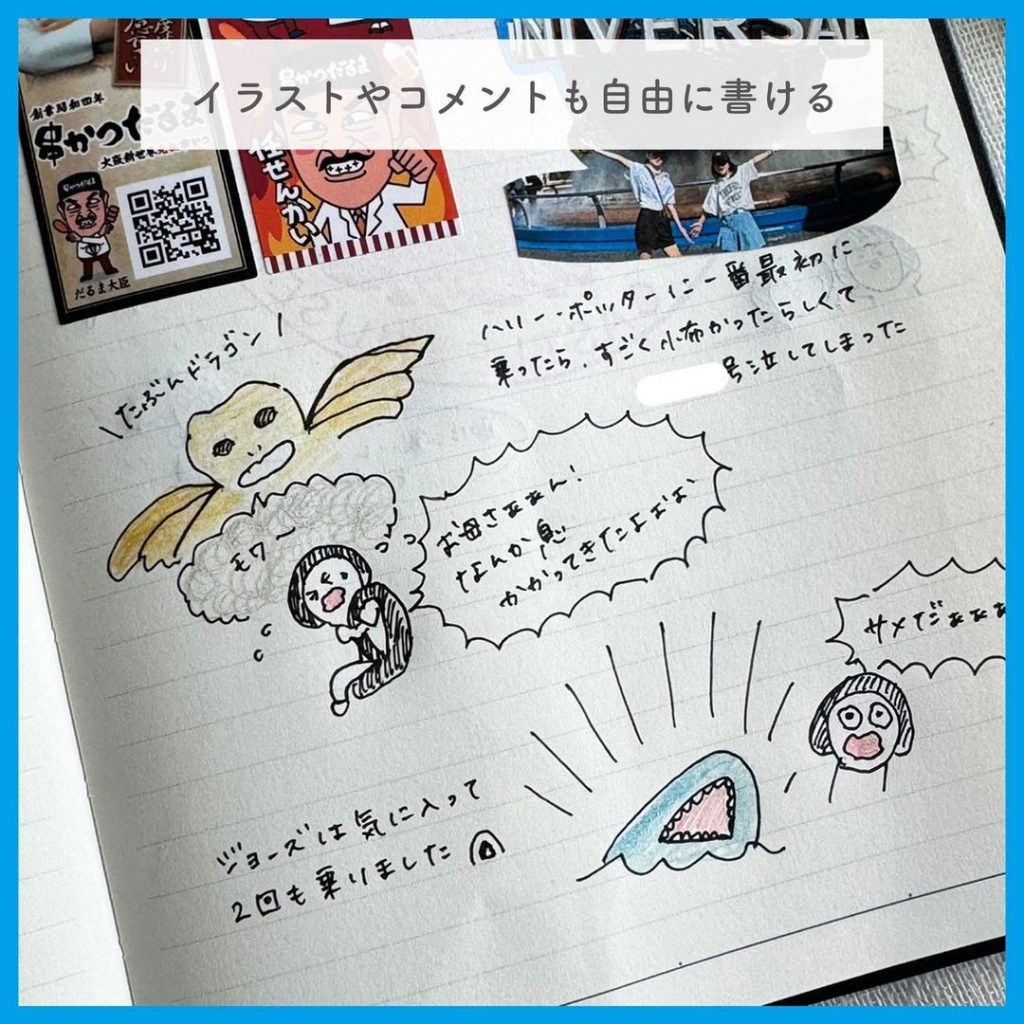 イラストやコメントも自由に書ける
UNIVERSAL
創業昭和四年
串かつだるま
だるま大臣
串かつだるま
任せんかい
たぶんドラゴン
ハリー・ポッターに一番最初に
乗ったら、すごく怖かったらしくて
号泣してしまった
モワ〜
お母さぁぁん!
なんか息
かかってきたよぉぉぉ
サメだぁぁぁ
ジョーズは気に入って
2回も乗りました